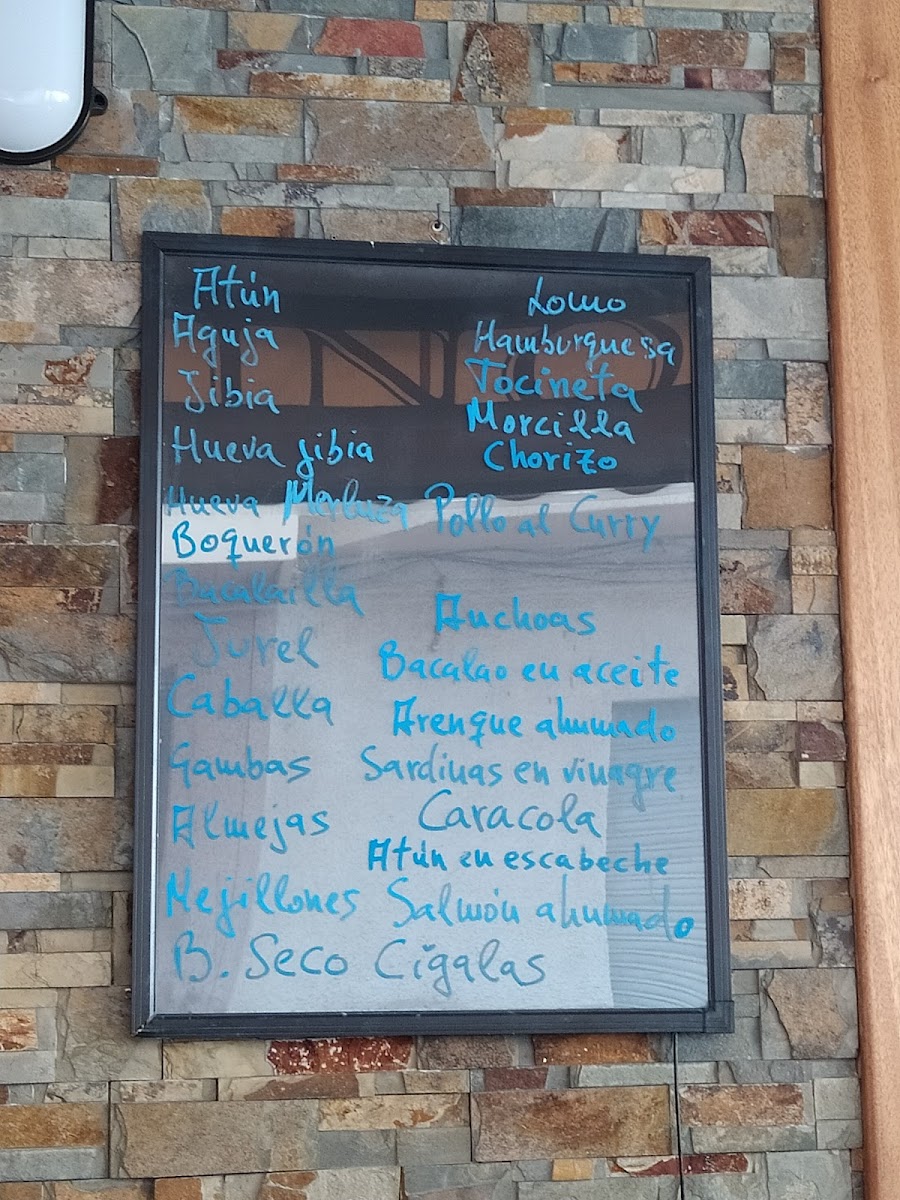 Atún
Aguja
Jibia
Hueva jibia
Hueva Merluza
Boquerón
Bacalailla
Jurel
Caballa
Gambas
Almejas
Mejillones
B. Seco
Lomo
Hamburquesa
Tocineta
Morcilla
Chorizo
Pollo al Curry
Anchoas
Bacalao en aceite
Arenque ahumado
Sardinas en vinagre
Caracola
Atún en escabeche
Salmón ahumado
Cigalas